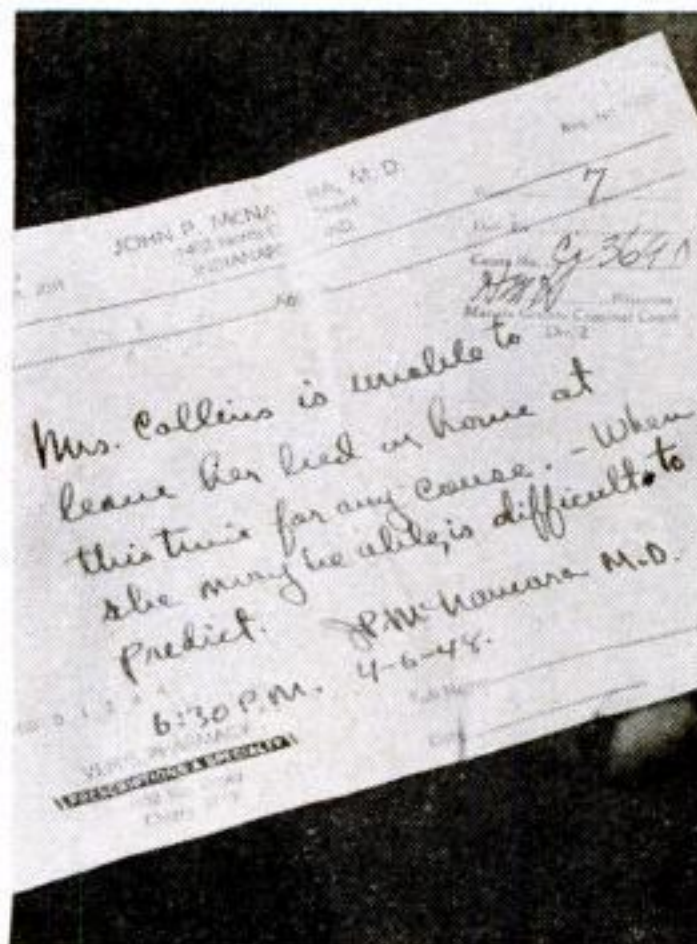 JOHN P. McNA RA, M. D.
INDIANAP IND.
7
Cj 3641
Marion County Criminal Court
Div. 2
Mrs. Collins is unable to
leave her bed or home at
this time for any cause. - When
she may be able, is difficult to
predict.
JP McNamara M.D.
6:30 P.M. 4-6-48.
PHARMACY
PRESCRIPTIONS A SPECIALTY